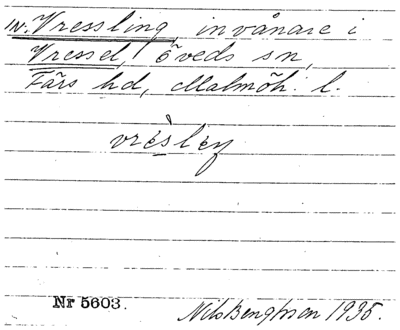 IN: Vressling, invånare i
Vressel, Öveds sn,
Färs hd, Malmöh. l.
Nr 5603.
Nils Bengtsson 1935.